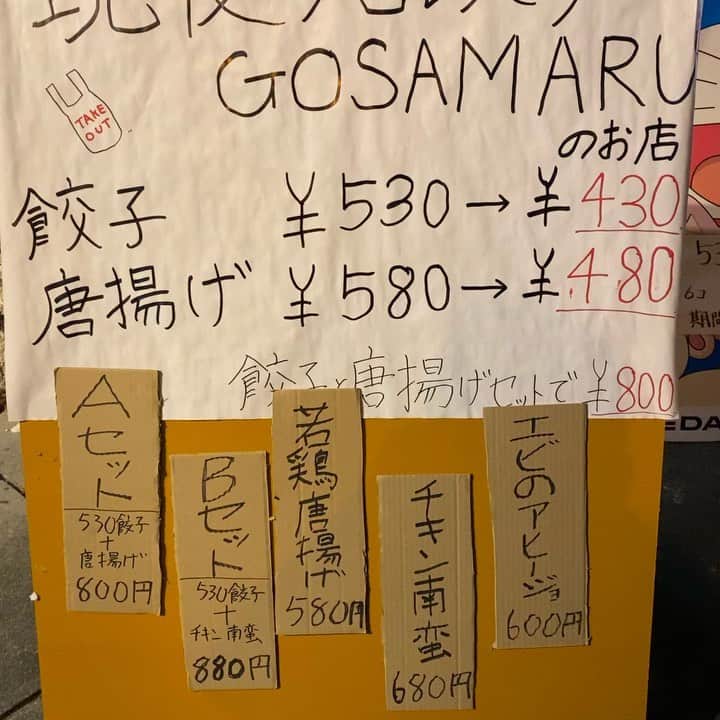 GOSAMARU
TAKE
OUT
のお店
餃子 ¥530→¥430
唐揚げ ¥580→¥480
餃子と唐揚げセットで¥800
Aセット
530餃子
+
唐揚げ
800円
Bセット
530餃子
+
チキン南蛮
880円
若鶏唐揚げ
580円
チキン南蛮
680円
エビのアヒージョ
600円
53
6コ
期間
EDA